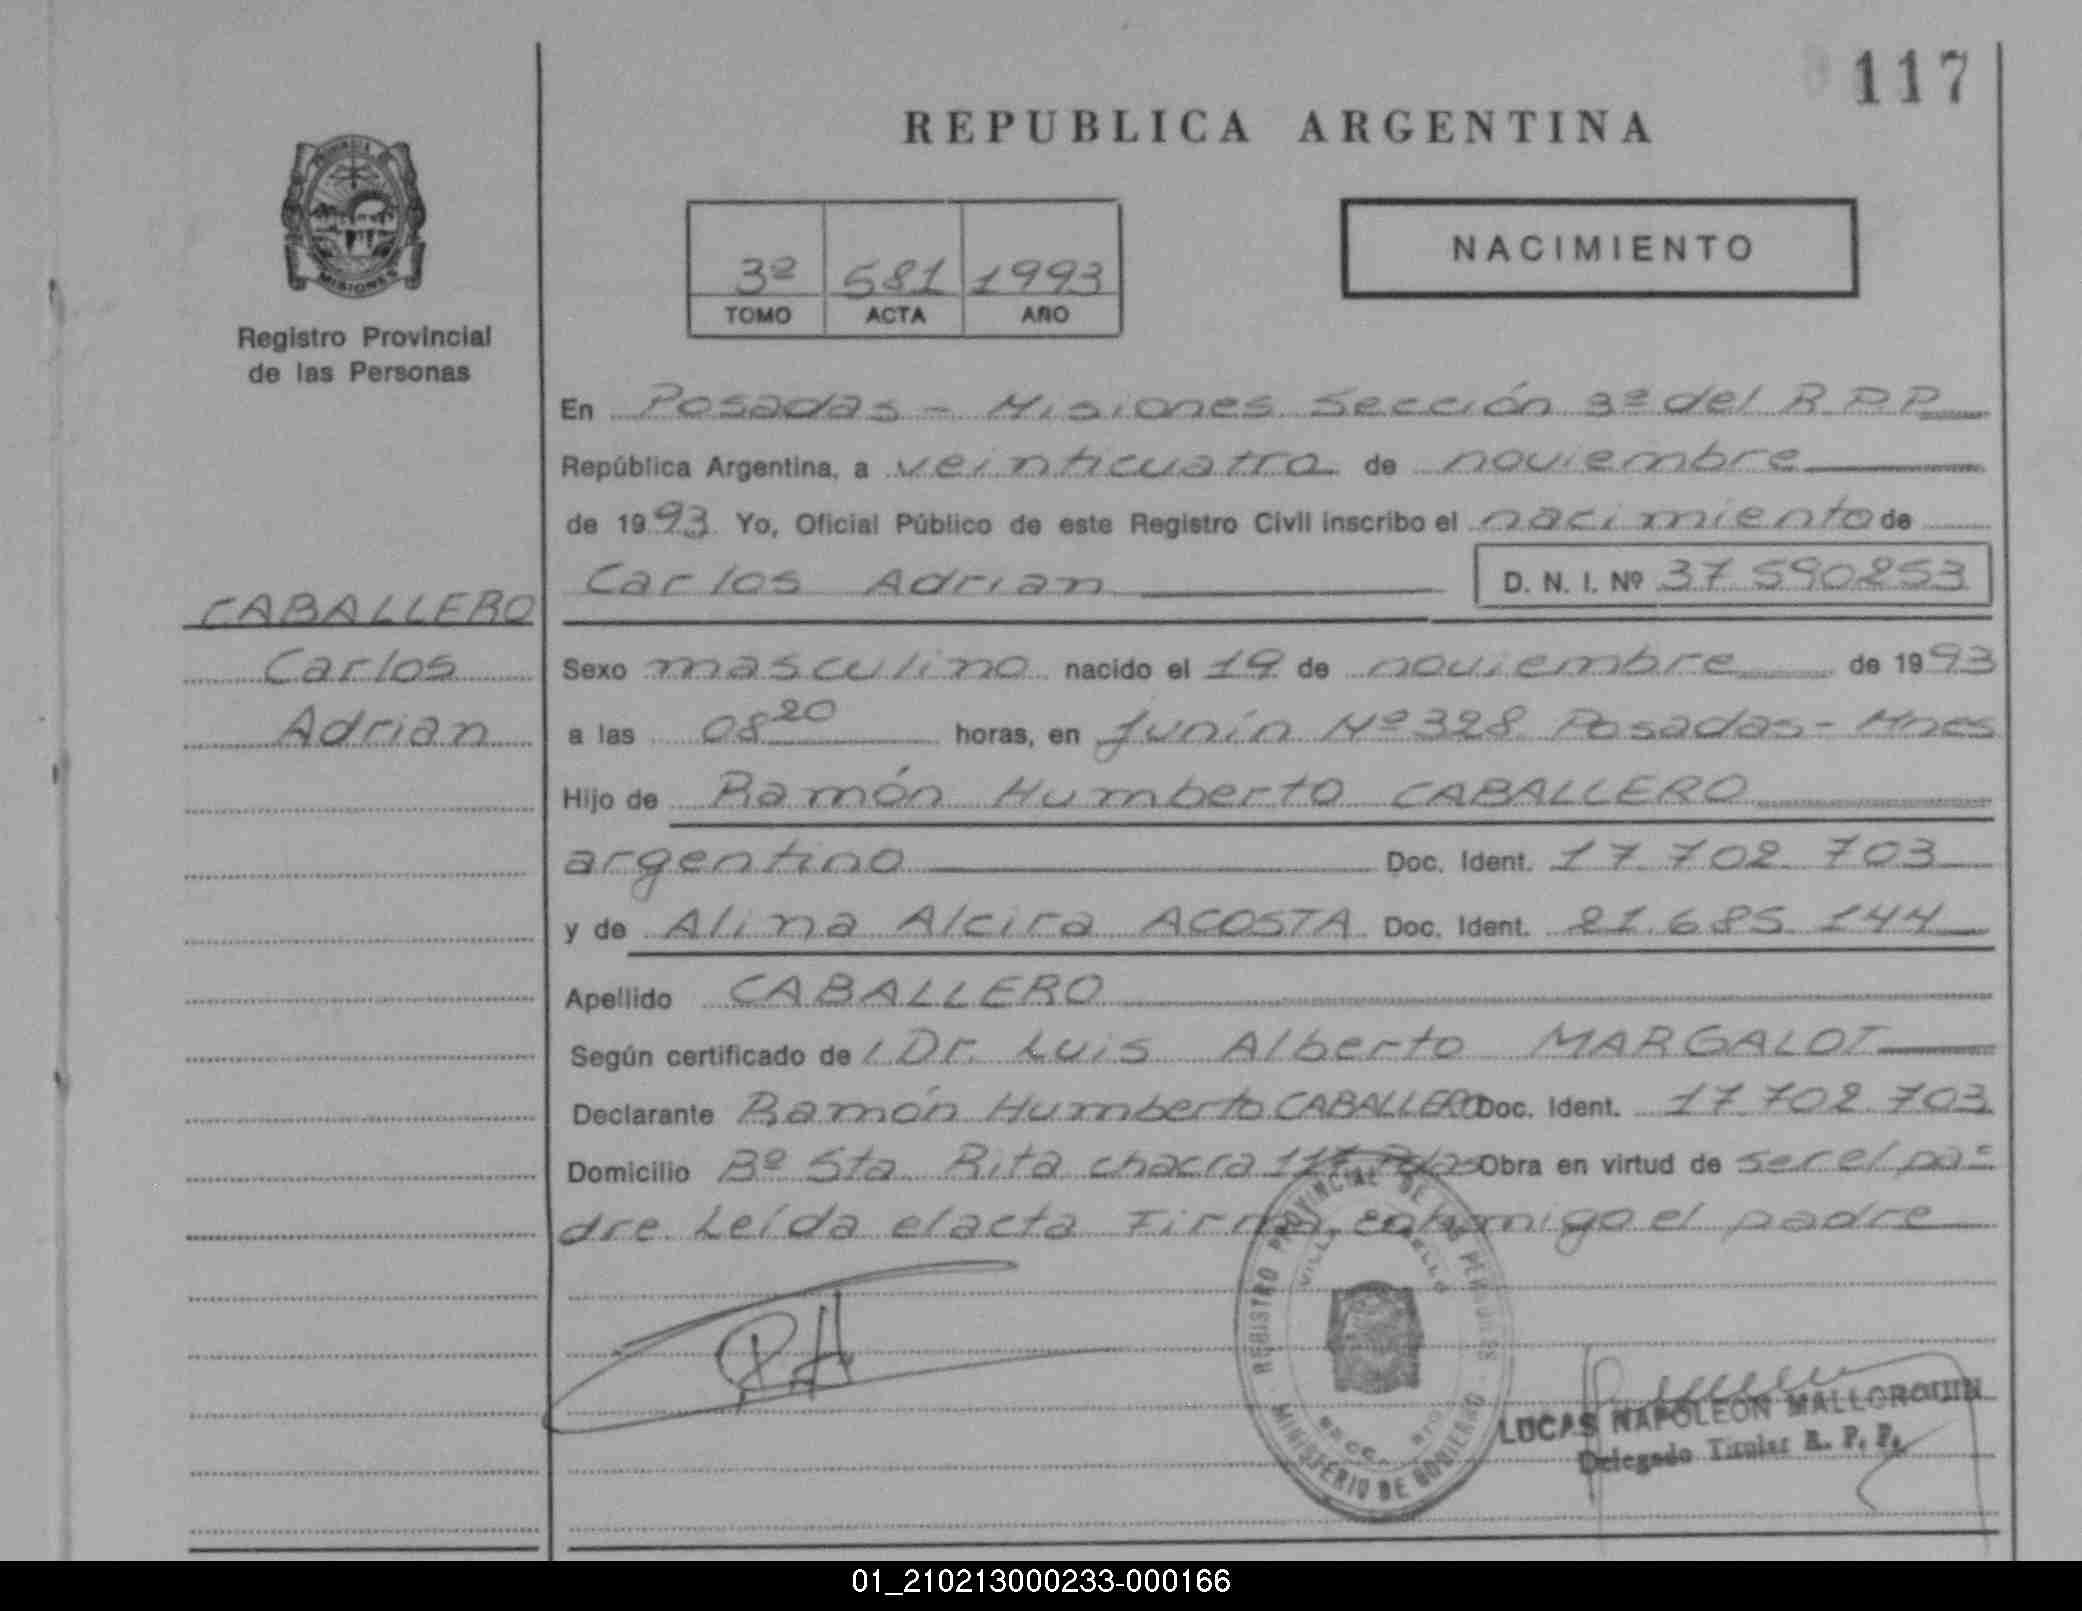 117
REPUBLICA ARGENTINA
PROVINCIA
MISIONES
Registro Provincial
de las Personas
3º 581 1993
TOMO ACTA AÑO
NACIMIENTO
En Posadas - Misiones Sección 3ª del R.P.P.
República Argentina, a veinticuatro de noviembre
de 1993 Yo, Oficial Público de este Registro Civil inscribo el nacimiento de
Carlos Adrian D. N. I. Nº 37 590253
CABALLERO
Carlos
Adrian
Sexo masculino nacido el 19 de noviembre de 1993
a las 08 20 horas, en Junín Nº 328 Posadas - Mnes
Hijo de Ramón Humberto CABALLERO
argentino Doc. Ident. 17.702.703
y de Alina Alcira ACOSTA Doc. Ident. 21.685.144
Apellido CABALLERO
Según certificado de l Dr. Luis Alberto MARGALOT
Declarante Ramón Humberto CABALLERO Doc. Ident. 17.702.703
Domicilio Bº Sta Rita chacra 117 Pdas Obra en virtud de ser el pa-
dre. Leída el acta Firma conmigo el padre
REGISTRO PROVINCIAL DE LAS PERSONAS
VILLA
MINISTERIO DE GOBIERNO
LUCAS NAPOLEON MALLORQUIN
Delegado Titular R. P. P.
01_210213000233-000166